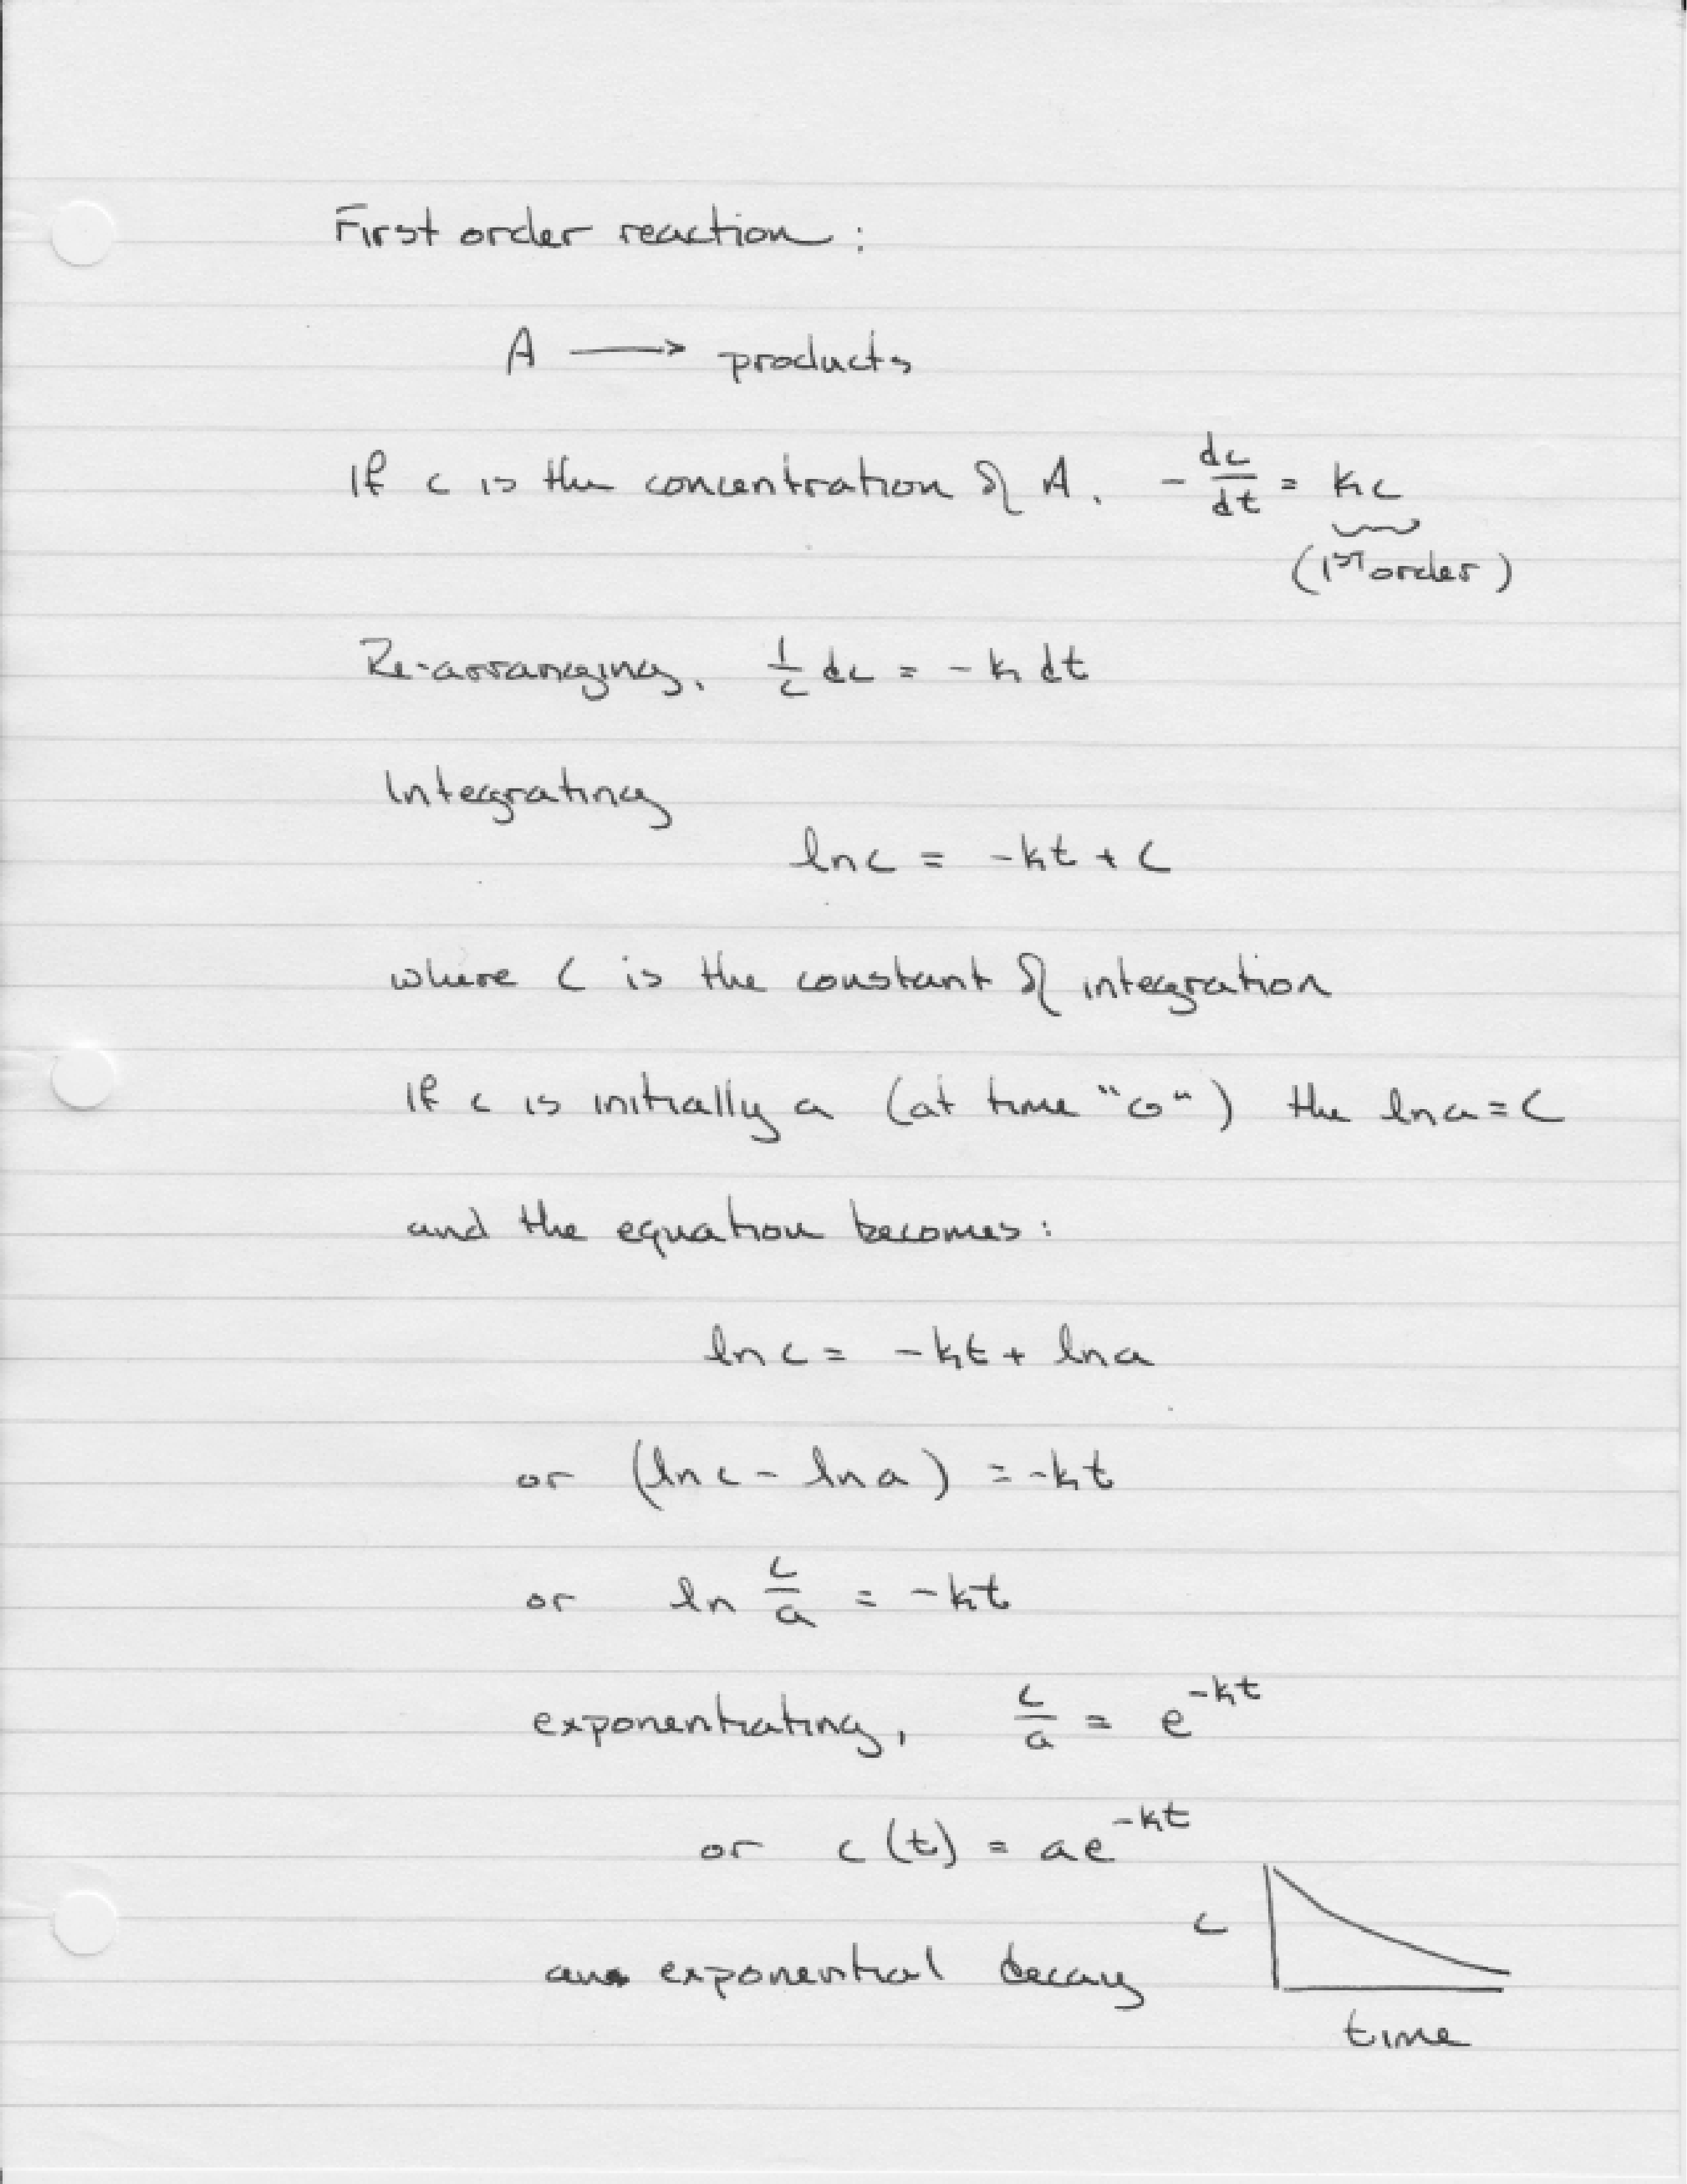 First order reaction :
A ⟶ products
If c is the concentration of A, - dc/dt = kc
(1st order)
Re-arranging, 1/c dc = - k dt
Integrating
ln c = -kt + C
where C is the constant of integration
If c is initially a (at time "0") the ln a = C
and the equation becomes :
ln c = -kt + ln a
or (ln c - ln a) = -kt
or ln c/a = -kt
exponentiating, c/a = e^-kt
or c(t) = ae^-kt
c
an exponential decay
time